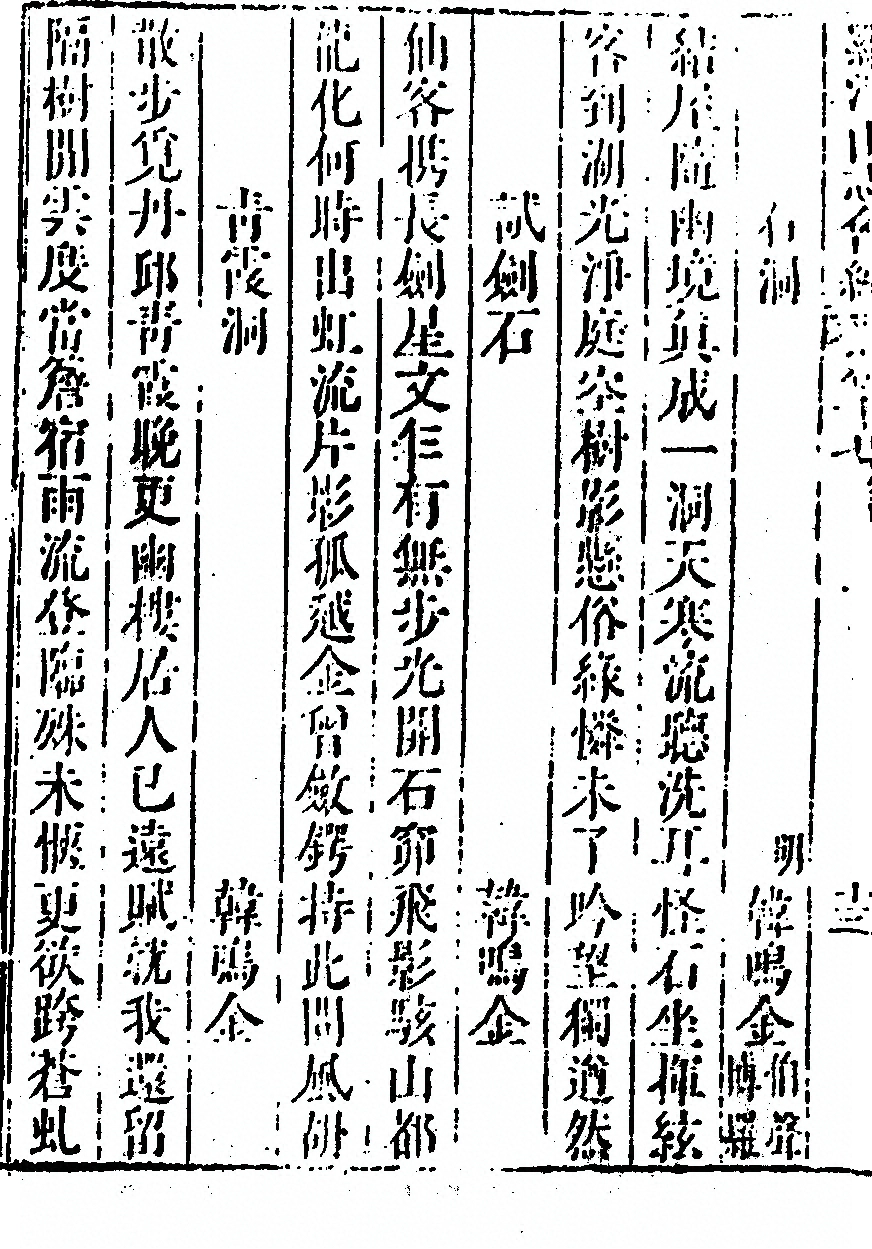 羅浮山志會編卷十七
石洞 明韓鳴金伯聲博羅
結屋臨幽境真成一洞天寒流聽洗耳怪石坐揮絃
客到湖光淨庭空樹影懸俗緣憐未了吟望獨逌然
試劍石 韓鳴金
仙客携長劍星文乍有無步光開石卵飛影駭山都
龍化何時出虹流片影孤越金曾斂鍔持此問風胡
青霞洞 韓鳴金
散步覓丹邱青霞晚更幽樓居人已遠賦就我還留
隔樹閒雲度當簷宿雨流登臨殊未愜更欲跨蒼虬